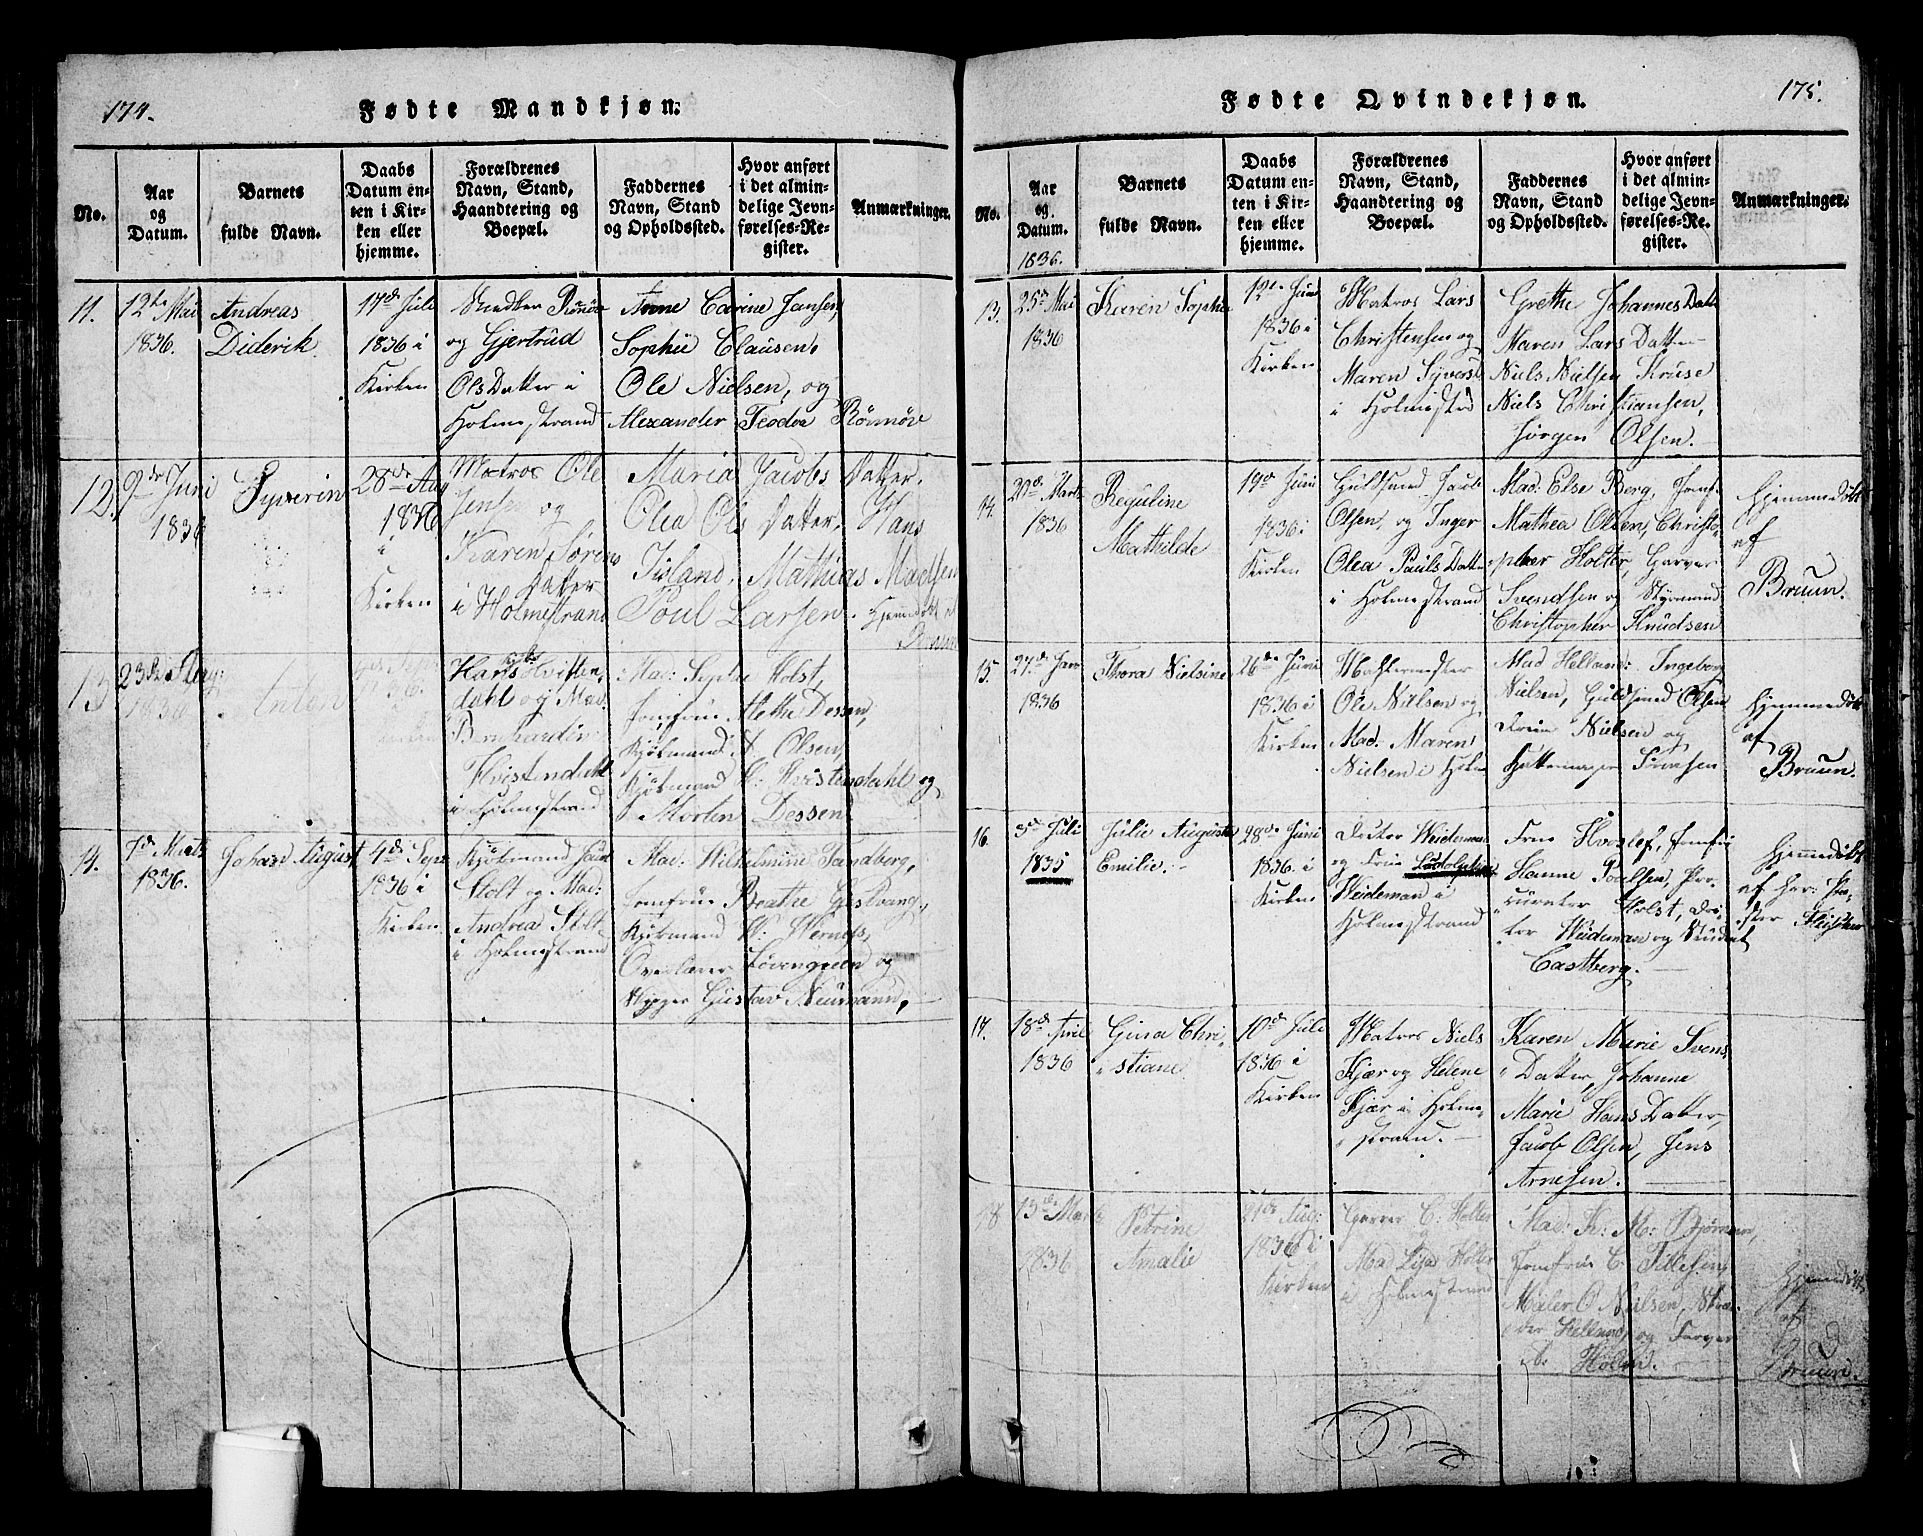 174.
Fødte Mandkjøn.
No.
Aar
og
Datum.
Barnets
fulde Navn.
Daabs
Datum en-
ten i Kir-
ken eller
hjemme.
Forældrenes
Navn, Stand,
Haandtering og
Boepæl.
Faddernes
Navn, Stand
og Opholdssted.
Hvor anført
i det almin-
delige Jevn-
førelses-Re-
gister.
Anmærkninger.
11.
12te Mai
1836.
Andreas
Diderik.
17de Juli
1836 i
Kirken
og Gjertrüd
Ols Datter i
Holmestrand
Anne Carine Jansen,
Sophie Clausen,
Ole Nielsen, og
Alexander Teodor Rönnöv
12.
9de Juni
1836
Syverin
28de Aug
1836
i
Kirken
Matros Ole
Jensen og
Karen Sørens
Datter
i Holmestrand
Maria Jacobs Datter,
Olea Ols Datter, Hans
Island, Mathias Madsen
Poul Larsen. Hjemmedöbt af
Bruun
13
23de
1836
Anton
1836.
Hans Hvisten,
dahl og Mad.
Bernhardin
Hvistendahl
i Holmestrand
Mad: Sophie Holst,
Jomfrue Alethe Dessen,
Kjøbmand A. Olsen,
Kjøbmand H. Hvistendahl og
Morten Dessen
14.
7de Marts
1836.
Johan August
4de Sept
1836 i
Kirken
Kjøbmand
Stolt og Mad:
Andrea Stolt
i Holmestrand
Mad: Wilhelmine Sandberg,
Jomfrue Beathe Gustvang,
Kjøbmand W. Werness,
Overlærer Lövengreen og
Gustav Neumann,
175.
Fødte Qvindekjøn.
No.
Aar
og
Datum.
1836.
Barnets
fulde Navn.
Daabs
Datum en-
ten i Kir-
ken eller
hjemme.
Forældrenes
Navn, Stand,
Haandtering og
Boepæl.
Faddernes
Navn, Stand
og Opholdssted.
Hvor anført
i det almin-
delige Jevn-
førelses-Re-
gister.
Anmærkninger.
13.
25de Mai
1836
Karen Sophie
12te Juni
1836 i
Kirken
Matros Lars
Christensen og
Maren Syversd
i Holmestrd
Grethe Johannes Datter
Maren Lars Datter
Niels Nielsen Kruse
Niels Christiansen,
Jørgen Olsen.
14.
20de Marts
1836
Reguline
Mathilde
19de Juni
1836 i
Kirken
Guldsmed Jacob
Olsen, og Inger
Olea Pauls Datter
i Holmestrand
Mad: Else Berg, Jomf.
Mathea Olsen, Christo-
pher Holter, Garver
Svendsen og Styrmand
Christopher Knudsen
Hjemmedöbt
af
Bruun.
15.
27de Janr
1836
Thora Nielsine
26de Juni
1836 i
Kirken
Ole Nielsen og
Mad. Maren
Nielsen i Holm
Mad Helland: Ingeborg
Nielsen, Guldsmed Olsen
Nielsen og
Sörensen
Hjemmedöbt
af
Bruun.
16.
3de Juli
1835
Julie Auguste
Emilie. -
28de Juni
1836 i
Kirken
Doctor Weideman
og Frue
Weideman i
Holmestrand
Frue Hvoslef, Jomfrü
Hanne Poulsen, Pro-
curator Holst, Doc-
tor Weideman og Student
Castberg.
Hjemmedöbt
af Her: Pa-
stor Fleischer
17.
18de April
1836
Gina Chri-
stiane
10de Juli
1836 i
Kirken
Matros Niels
Kjær og Helene
Kjær i Holme-
strand. -
Karen Marie Svens
Datter, Johanne
Marie Hans Datter,
Jacob Olsen, Jens
Arnesen.
18
13de Marts
1836
Petrine
Amalie
21de Aug:
1836 i
Kirken
Garver C. Holter
og
Mad Lisa Holter
i Holmestrand
Mad. K: M: Bjørner,
Jomfrue C. Tillesen,
Maler O Nielsen,
Helland, og Farver
Holm.
Hjemmedöbt
af
Bruun.